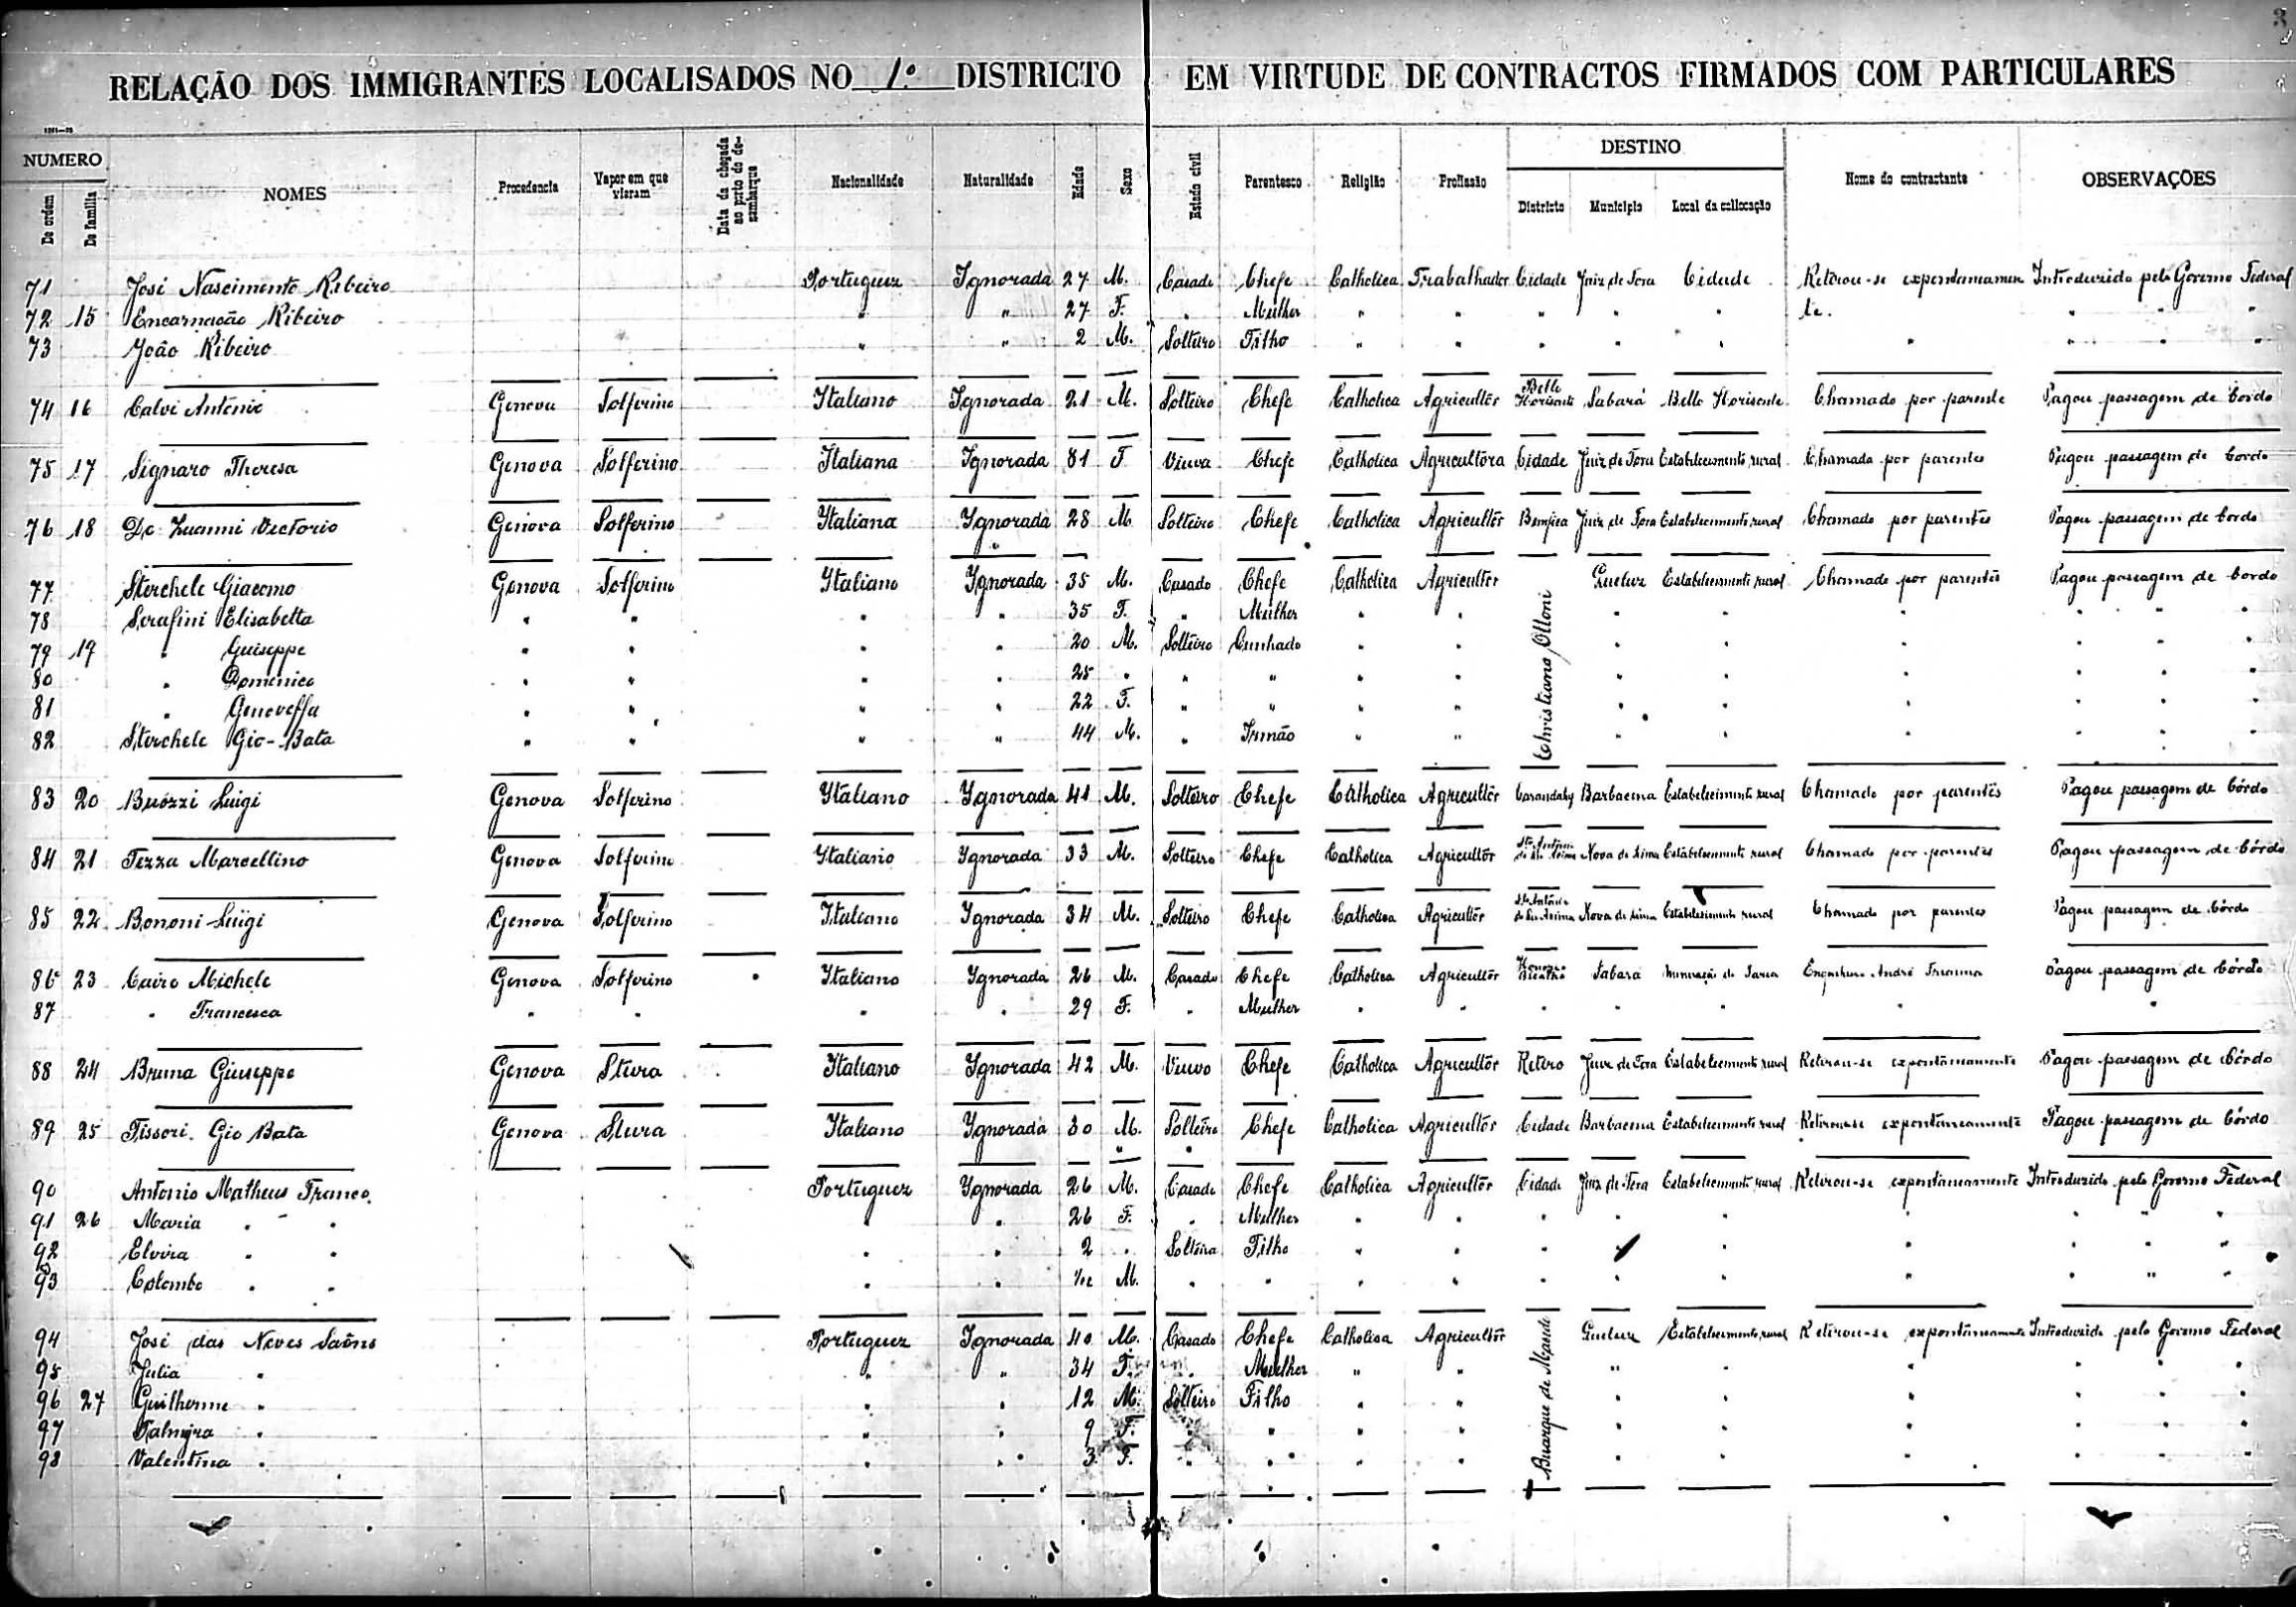 3
RELAÇÃO DOS IMMIGRANTES LOCALISADOS NO 1º DISTRICTO EM VIRTUDE DE CONTRACTOS FIRMADOS COM PARTICULARES
NUMERO
De ordem De familia NOMES Procedencia Vapor em que vieram Data da chegada ao porto do desembarque Nacionalidade Naturalidade Edade Sexo Estado civil Parentesco Religião Profissão DESTINO Districto Municipio Local da collocação Nome do contractante OBSERVAÇÕES
71 José Nascimento Ribeiro Portuguez Ignorada 27 M. Casado Chefe Catholica Trabalhador Cidade Juiz de Fora Cidade Retirou-se expontaneamen Introduzido pelo Governo Federal
72 15 Encarnação Ribeiro " " 27 F. " Mulher " " " " " te. " " "
73 João Ribeiro " " 2 M. Solteiro Filho " " " " " " " " "
74 16 Calvi Antonio Genova Solferino Italiano Ignorada 21 M. Solteiro Chefe Catholica Agricultôr Bello Horisonte Sabará Bello Horisonte Chamado por parente Pagou passagem de bordo
75 17 Signaro Theresa Genova Solferino Italiana Ignorada 81 F Viuva Chefe Catholica Agricultora Cidade Juiz de Fora Estabelecimento rural Chamada por parentes Pagou passagem de bordo
76 18 De Zuanni Victorio Genova Solferino Italiana Ignorada 28 M Solteiro Chefe Catholica Agricultôr Bemfica Juiz de Fora Estabelecimento rural Chamado por parentes Pagou passagem de bordo
77 Sterchele Giacomo Genova Solferino Italiano Ignorada 35 M. Casado Chefe Catholica Agricultor Christiano Ottoni Queluz Estabelecimento rural Chamado por parentes Pagou passagem de bordo
78 Serafini Elisabetta " " " " 35 F. " Mulher " " " " " " " "
79 19 " Guiseppe " " " " 20 M. Solteiro Cunhado " " " " " " " "
80 " Domenico " " " " 25 " " " " " " " " " " "
81 " Genoveffa " " " " 22 F. " " " " " " " " " "
82 Sterchele Gio-Bata " " " " 44 M. " Irmão " " " " " " " "
83 20 Buózzi Luigi Genova Solferino Italiano Ignorada 41 M. Solteiro Chefe Catholica Agricultôr Carandahy Barbacena Estabelecimento rural Chamado por parentes Pagou passagem de bórdo
84 21 Tezza Marcellino Genova Solferino Italiano Ignorada 33 M. Solteiro Chefe Catholica Agricultôr Nova de Lima Estabelecimento rural Chamado por parentes Pagou passagem de bórdo
85 22 Bononi Luigi Genova Solferino Italiano Ignorada 34 M. Solteiro Chefe Catholica Agricultôr Nova de Lima Estabelecimento rural Chamado por parentes Pagou passagem de bórdo
86 23 Cairo Michele Genova Solferino Italiano Ignorada 26 M. Casado Chefe Catholica Agricultôr Sabará Engenheiro André Pagou passagem de bórdo
87 " Francesca " " " " 29 F. " Mulher " " " " " " "
88 24 Bruna Giuseppe Genova Stura Italiano Ignorada 42 M. Viuvo Chefe Catholica Agricultôr Retiro Juiz de Fora Estabelecimento rural Retirou-se expontaneamente Pagou passagem de bórdo
89 25 Tissori Gio Bata Genova Stura Italiano Ignorada 30 M. Solteiro Chefe Catholica Agricultôr Cidade Barbacena Estabelecimento rural Retirou-se expontaneamente Pagou passagem de bórdo
90 Antonio Matheus Franco Portuguez Ignorada 26 M. Casado Chefe Catholica Agricultôr Cidade Juiz de Fora Estabelecimento rural Retirou-se expontaneamente Introduzido pelo Governo Federal
91 26 Maria " " " " 26 F. " Mulher " " " " " " " " "
92 Elvira " " " " 2 " Solteira Filho " " " " " " " "
93 Colombo " " " " 1/12 M. " " " " " " " " " " "
94 José das Neves Portuguez Ignorada 40 M. Casado Chefe Catholica Agricultôr Buarque de Macedo Queluz Estabelecimento rural Retirou-se expontaneamente Introduzido pelo Governo Federal
95 Julia " " " 34 F. " Mulher " " " " " " " "
96 27 Guilherme " " " 12 M. Solteiro Filho " " " " " " " "
97 Palmyra " " " 9 F. " " " " " " " " " "
98 Valentina " " " 3 F. " " " " " " " " " "